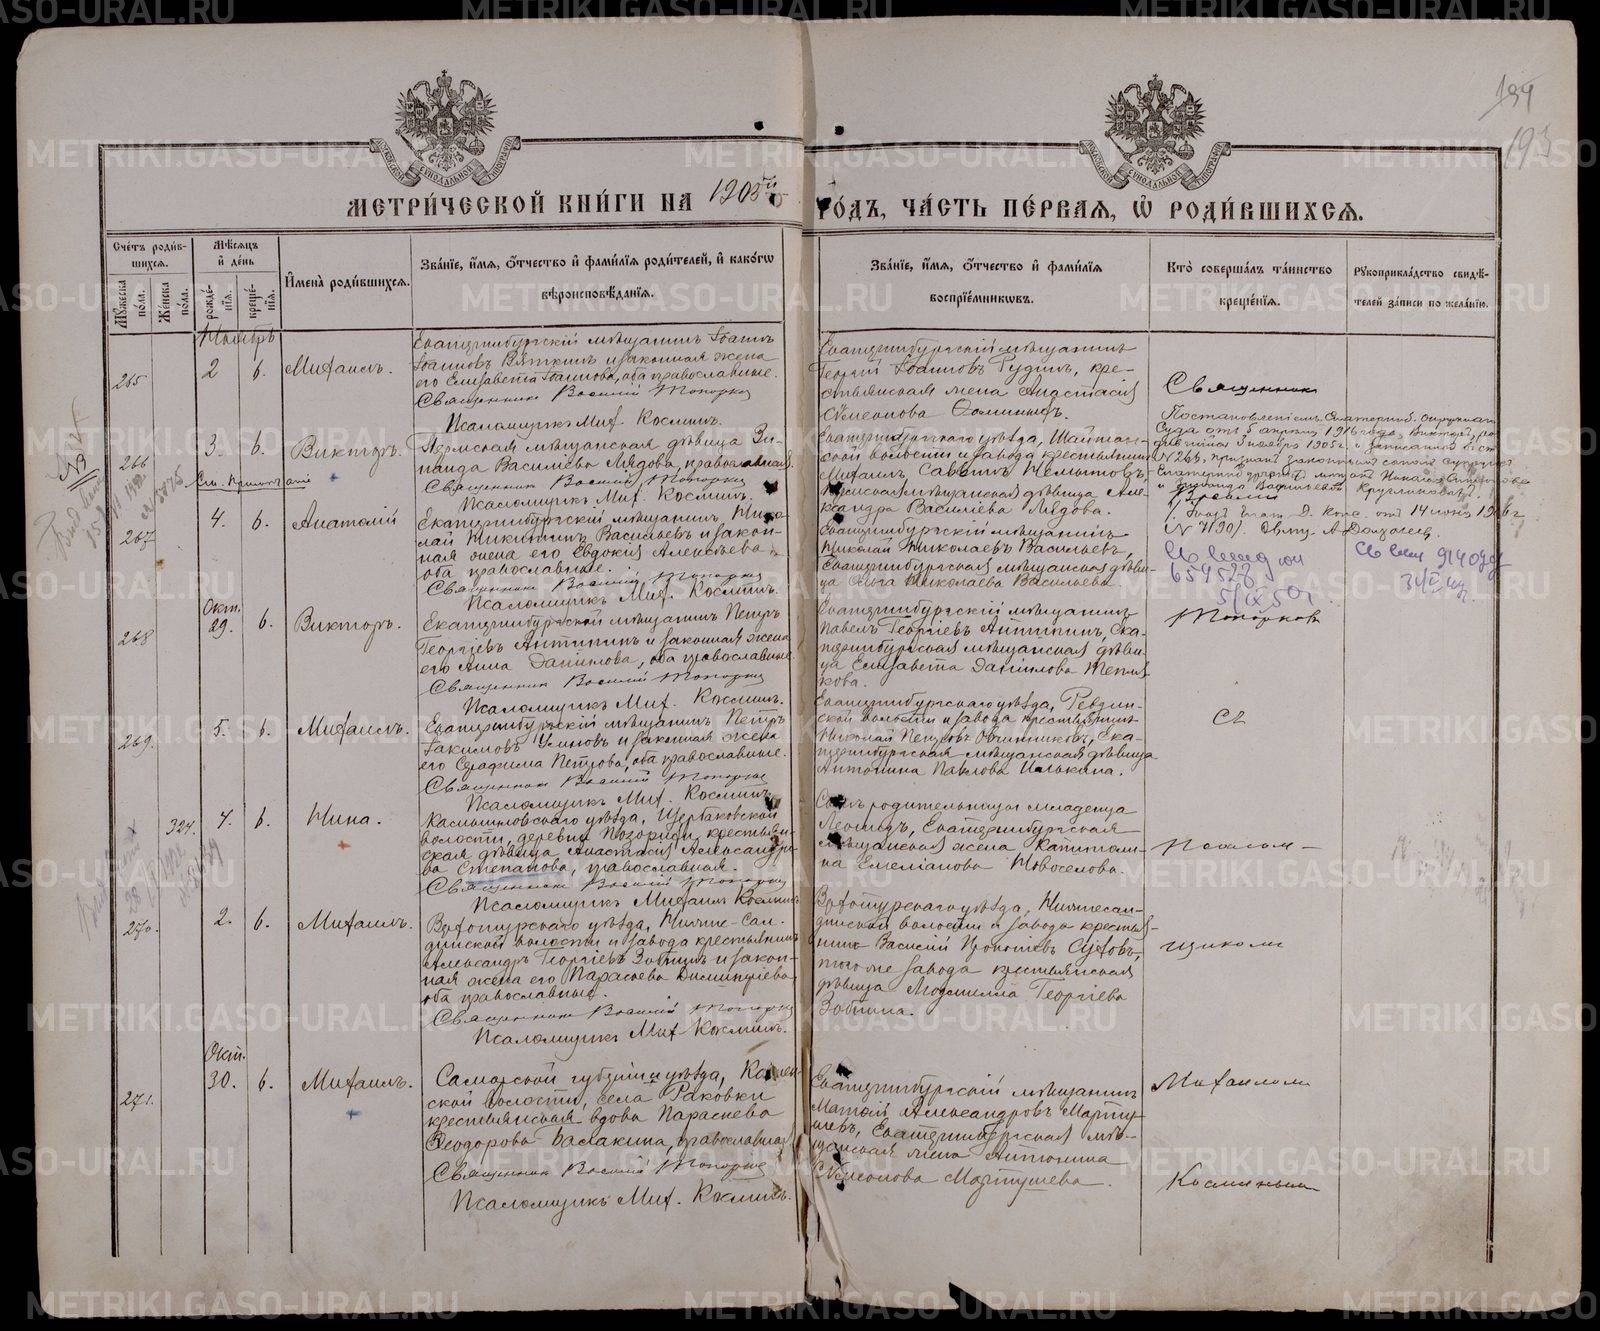 194
193
МЕТРИ́ЧЕСКОЙ КНИ́ГИ НА 1905й ГО́ДЪ, ЧА́СТЬ ПЕ́РВАЯ, Ѡ РОДИ́ВШИХСЯ.
Сче́тъ роди́в-
шихся.
Му́жеска по́ла.
Же́нска по́ла.
Мѣ́сяцъ и де́нь
рожде́-
нія.
креще́-
нія.
Имена̀ роди́вшихся.
Зва́нїе, и́мя, о́тчество и фами́лїя роди́телей, и како́гѡ
вѣроисповѣ́данїя.
Зва́нїе, и́мя, о́тчество и фами́лїя
воспрїе́мникѡвъ.
Кто̀ соверша́лъ та́инство
креще́нїя.
Рукоприкла́дство свидѣ́-
телей за́писи по жела́нїю.
Ноябрь
265
2
6.
Михаилъ.
Екатеринбургскій мѣщанинъ Іоаннъ
Іоанновъ Вяткинъ и законная жена
его Елизавета Іоаннова, оба православные.
Священникъ Василій Топорков
Псаломщикъ Мих. Косминъ.
Екатеринбургскій мѣщанинъ
Георгій Іоанновъ Рудинъ, кре-
стьянская жена Анастасія
Сѵмеонова Фоминыхъ.
Священник
266
3.
6.
Викторъ.
См. Примѣчаніе
Пермская мѣщанская дѣвица Зи-
наида Васильева Лядова, православная.
Священник Василий Топорков
Псаломщикъ Мих. Косминъ.
Екатеринбургскаго уѣзда, Шайтан-
ской волости и завода крестьянинъ
Михаилъ Саввинъ
Пермская мѣщанская дѣвица Але-
ксандра Васильева Лядова.
Постановленіемъ Екатеринб. Окружнаго
Суда отъ 5 апрѣля 1916 года, Викторъ, ро-
дившійся 3 ноября 1905 г. и записанный в ст.
№ 266, признанъ законнымъ сыномъ
267
4.
6.
Анатолій
Екатеринбургскій мѣщанинъ Нико-
лай Никитинъ Васильевъ и закон-
ная жена его Евдокія Алексѣева,
оба православные.
Священник Василий Топорков
Псаломщикъ Мих. Косминъ.
Екатеринбургскій мѣщанинъ
Николай Николаевъ Васильевъ,
Екатеринбургская мѣщанская дѣви-
ца Ольга Николаева Васильева
268
Окт.
29.
6.
Викторъ.
Екатеринбургскій мѣщанинъ Петръ
Георгіевъ Антипинъ и законная жена
его Анна Даніилова, оба православные.
Священник Василий Топорков
Псаломщикъ Мих. Косминъ.
Екатеринбургскій мѣщанинъ
Павелъ Георгіевъ Антипинъ, Ека-
теринбургская мѣщанская дѣви-
ца Елизавета Даніилова Тепля-
кова.
Топорков
269.
5.
6.
Михаилъ.
Екатеринбургскій мѣщанинъ Петръ
Іакимовъ Уминовъ и законная жена
его Серафима Петрова, оба православные.
Священник Василий Топорков
Псаломщикъ Мих. Косминъ.
Екатеринбургскаго уѣзда, Ревдин-
ской волости и завода крестьянинъ
Николай Петровъ Овчинниковъ, Ека-
теринбургская мѣщанская дѣвица
Антонина Павлова Илькина.
Съ
324.
4.
6.
Нина.
Камышловскаго уѣзда, Щербаковской
волости, деревни Позорихи, крестьян-
ская дѣвица Анастасія Александро-
ва Степанова, православная.
Священник Василий Топорков
Псаломщикъ Михаилъ Косминъ
Сынъ родительницы младенца
Леонидъ, Екатеринбургская
мѣщанская жена Капитоли-
на Емеліанова Новоселова.
Псалом-
270.
2.
6.
Михаилъ.
Верхотурскаго уѣзда, Нижне-Сал-
динской волости и завода крестьянинъ
Александръ Георгіевъ Зобнинъ и закон-
ная жена его Параскева Димитріева
оба православные.
Священник Василий Топорков
Псаломщикъ Мих. Косминъ.
Верхотурскаго уѣзда, Нижнесал-
динской волости и завода крестья-
нинъ Василій Прокопіевъ Суховъ,
того же завода крестьянская
дѣвица Людмилла Георгіева
Зобнина.
щиком
271.
Окт.
30.
6.
Михаилъ.
Самарской губерніи и уѣзда, Камен-
ской волости, села Раковки
крестьянская вдова Параскева
Ѳеодорова Балакина, православная
Священник Василий Топорков
Псаломщикъ Мих. Косминъ.
Екатеринбургскій мѣщанинъ
Матѳій Александровъ Марту-
шевъ, Екатеринбургская мѣ-
щанская жена Антонина
Сѵмеонова Мартушева.
Михаилом
Косминым
METRIKI.GASO-URAL.RU